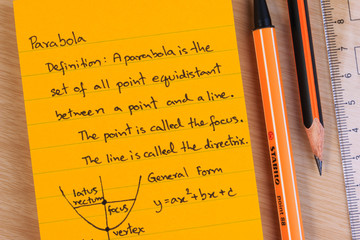 Parabola
Definition: A parabola is the
set of all point equidistant
between a point and a line.
The point is called the focus.
The line is called the directrix.
General Form
y=ax²+bx+c
latus
rectum
focus
vertex
STABILO
point 88